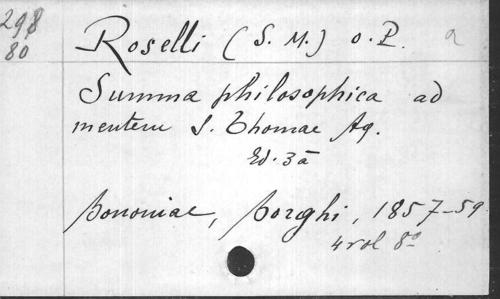 298
80
Roselli (S. M.) O. P. a
Summa philosophica ad
mentem S. Thomae Aq.
Ed. 3ā
Bononiae, Borghi, 1857-59
4 vol 8°